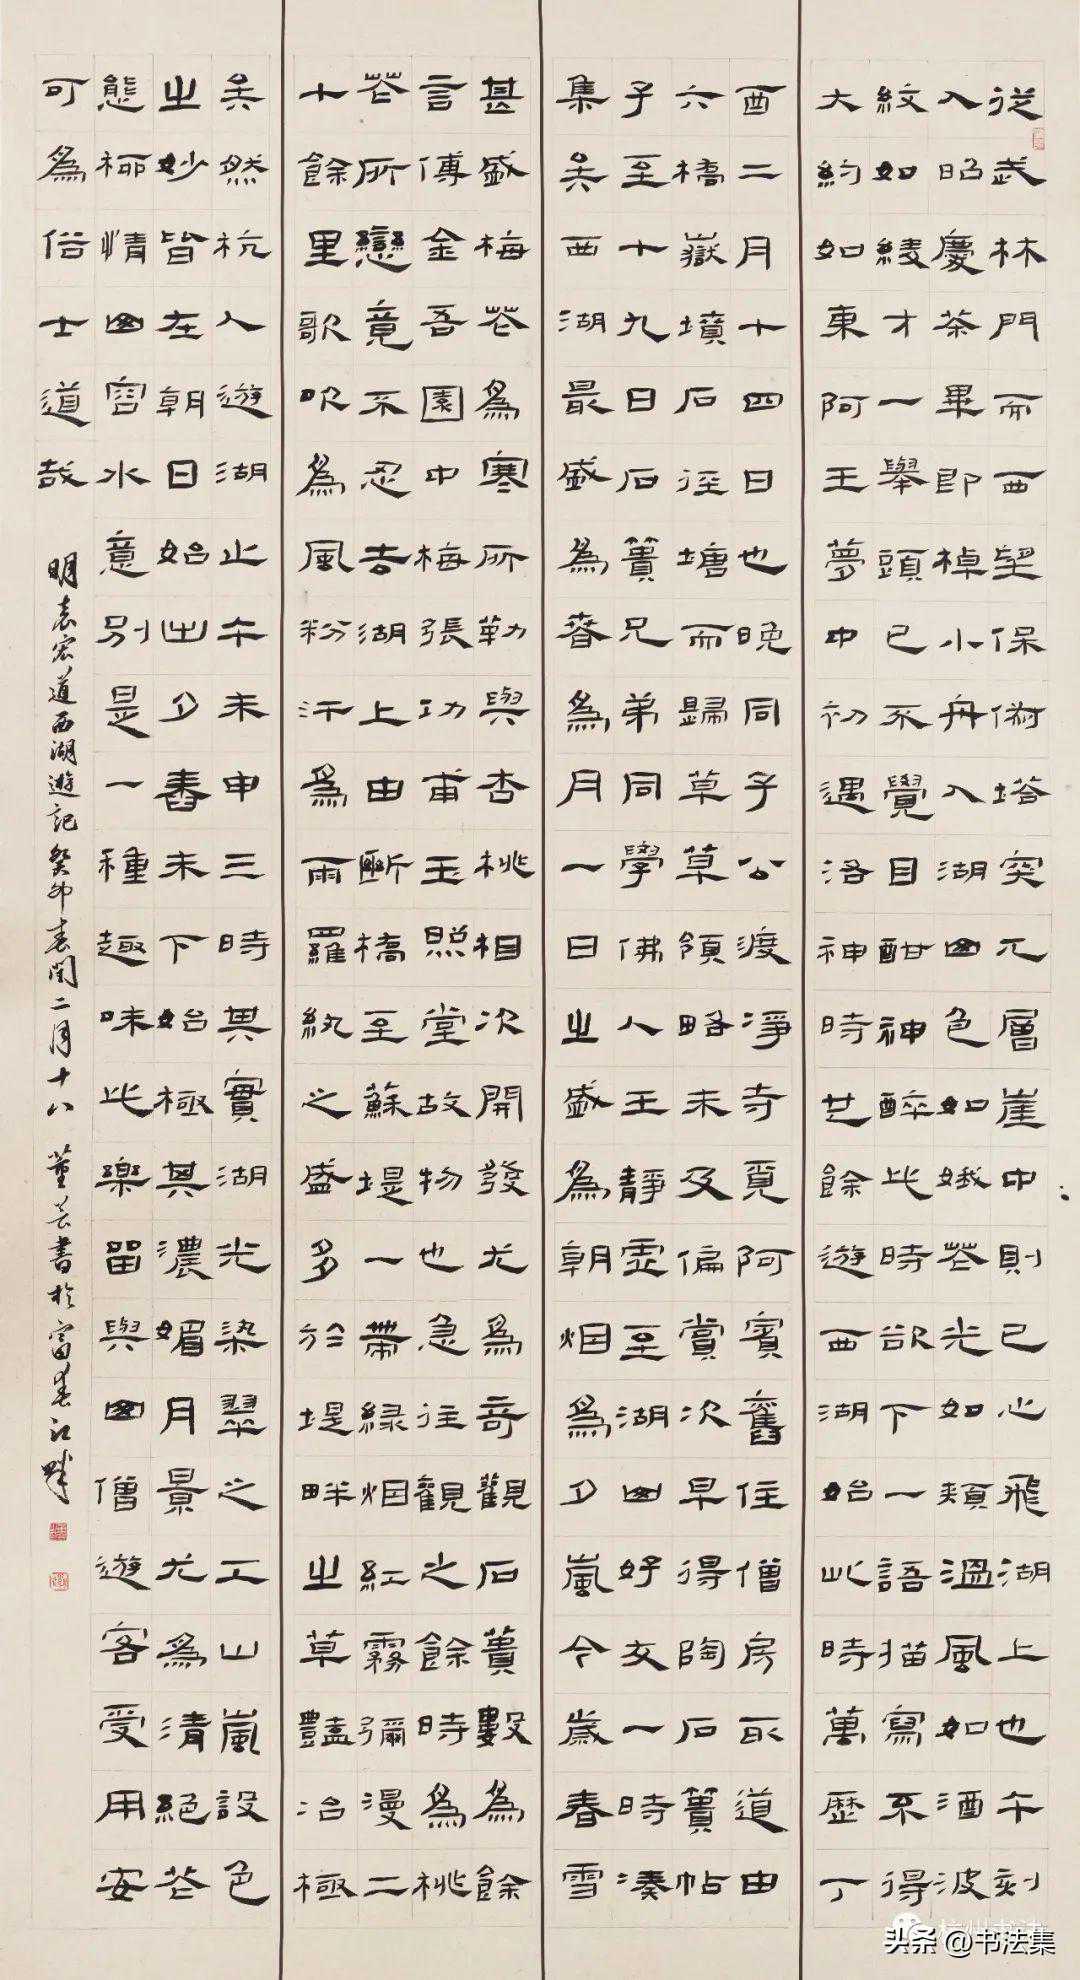 從武林門而西望保俶塔突兀層崖中則已心飛湖上也午刻
入昭慶茶畢即棹小舟入湖山色如娥花光如頰溫風如酒波
紋如綾才一舉頭已不覺目酣神醉此時欲下一語描寫不得
大約如東阿王夢中初遇洛神時世餘遊西湖始此時萬歷丁
酉二月十四日也晚同子公渡淨寺覓阿賓舊住僧房取道由
六橋嶽墳石徑塘而歸草草領略未及偏賞次早得陶石簣帖
子至十九日石簣兄弟同學佛人王靜虛至湖山好友一時湊
集矣西湖最盛爲春爲月一日之盛爲朝烟爲夕嵐今歲春雪
甚盛梅花爲寒所勒與杏桃相次開發尤爲奇觀石簣數爲餘
言傅金吾園中梅張功甫玉照堂故物也急往觀之餘時爲桃
花所戀竟不忍去湖上由斷橋至蘇堤一帶緑烟紅霧彌漫二
十餘里歌吹爲風粉汗爲雨羅紈之盛多於堤畔之草豔冶極
矣然杭人遊湖止午未申三時其實湖光染翠之工山嵐設色
之妙皆在朝日始出夕舂未下始極其濃媚月景尤爲清絕花
態柳情山容水意別是一種趣味此樂留與山僧遊客受用安
可爲俗士道哉
明袁宏道西湖遊記癸卯春閏二月十八 董芸書於富春江畔
杭州书法
头条 @书法集